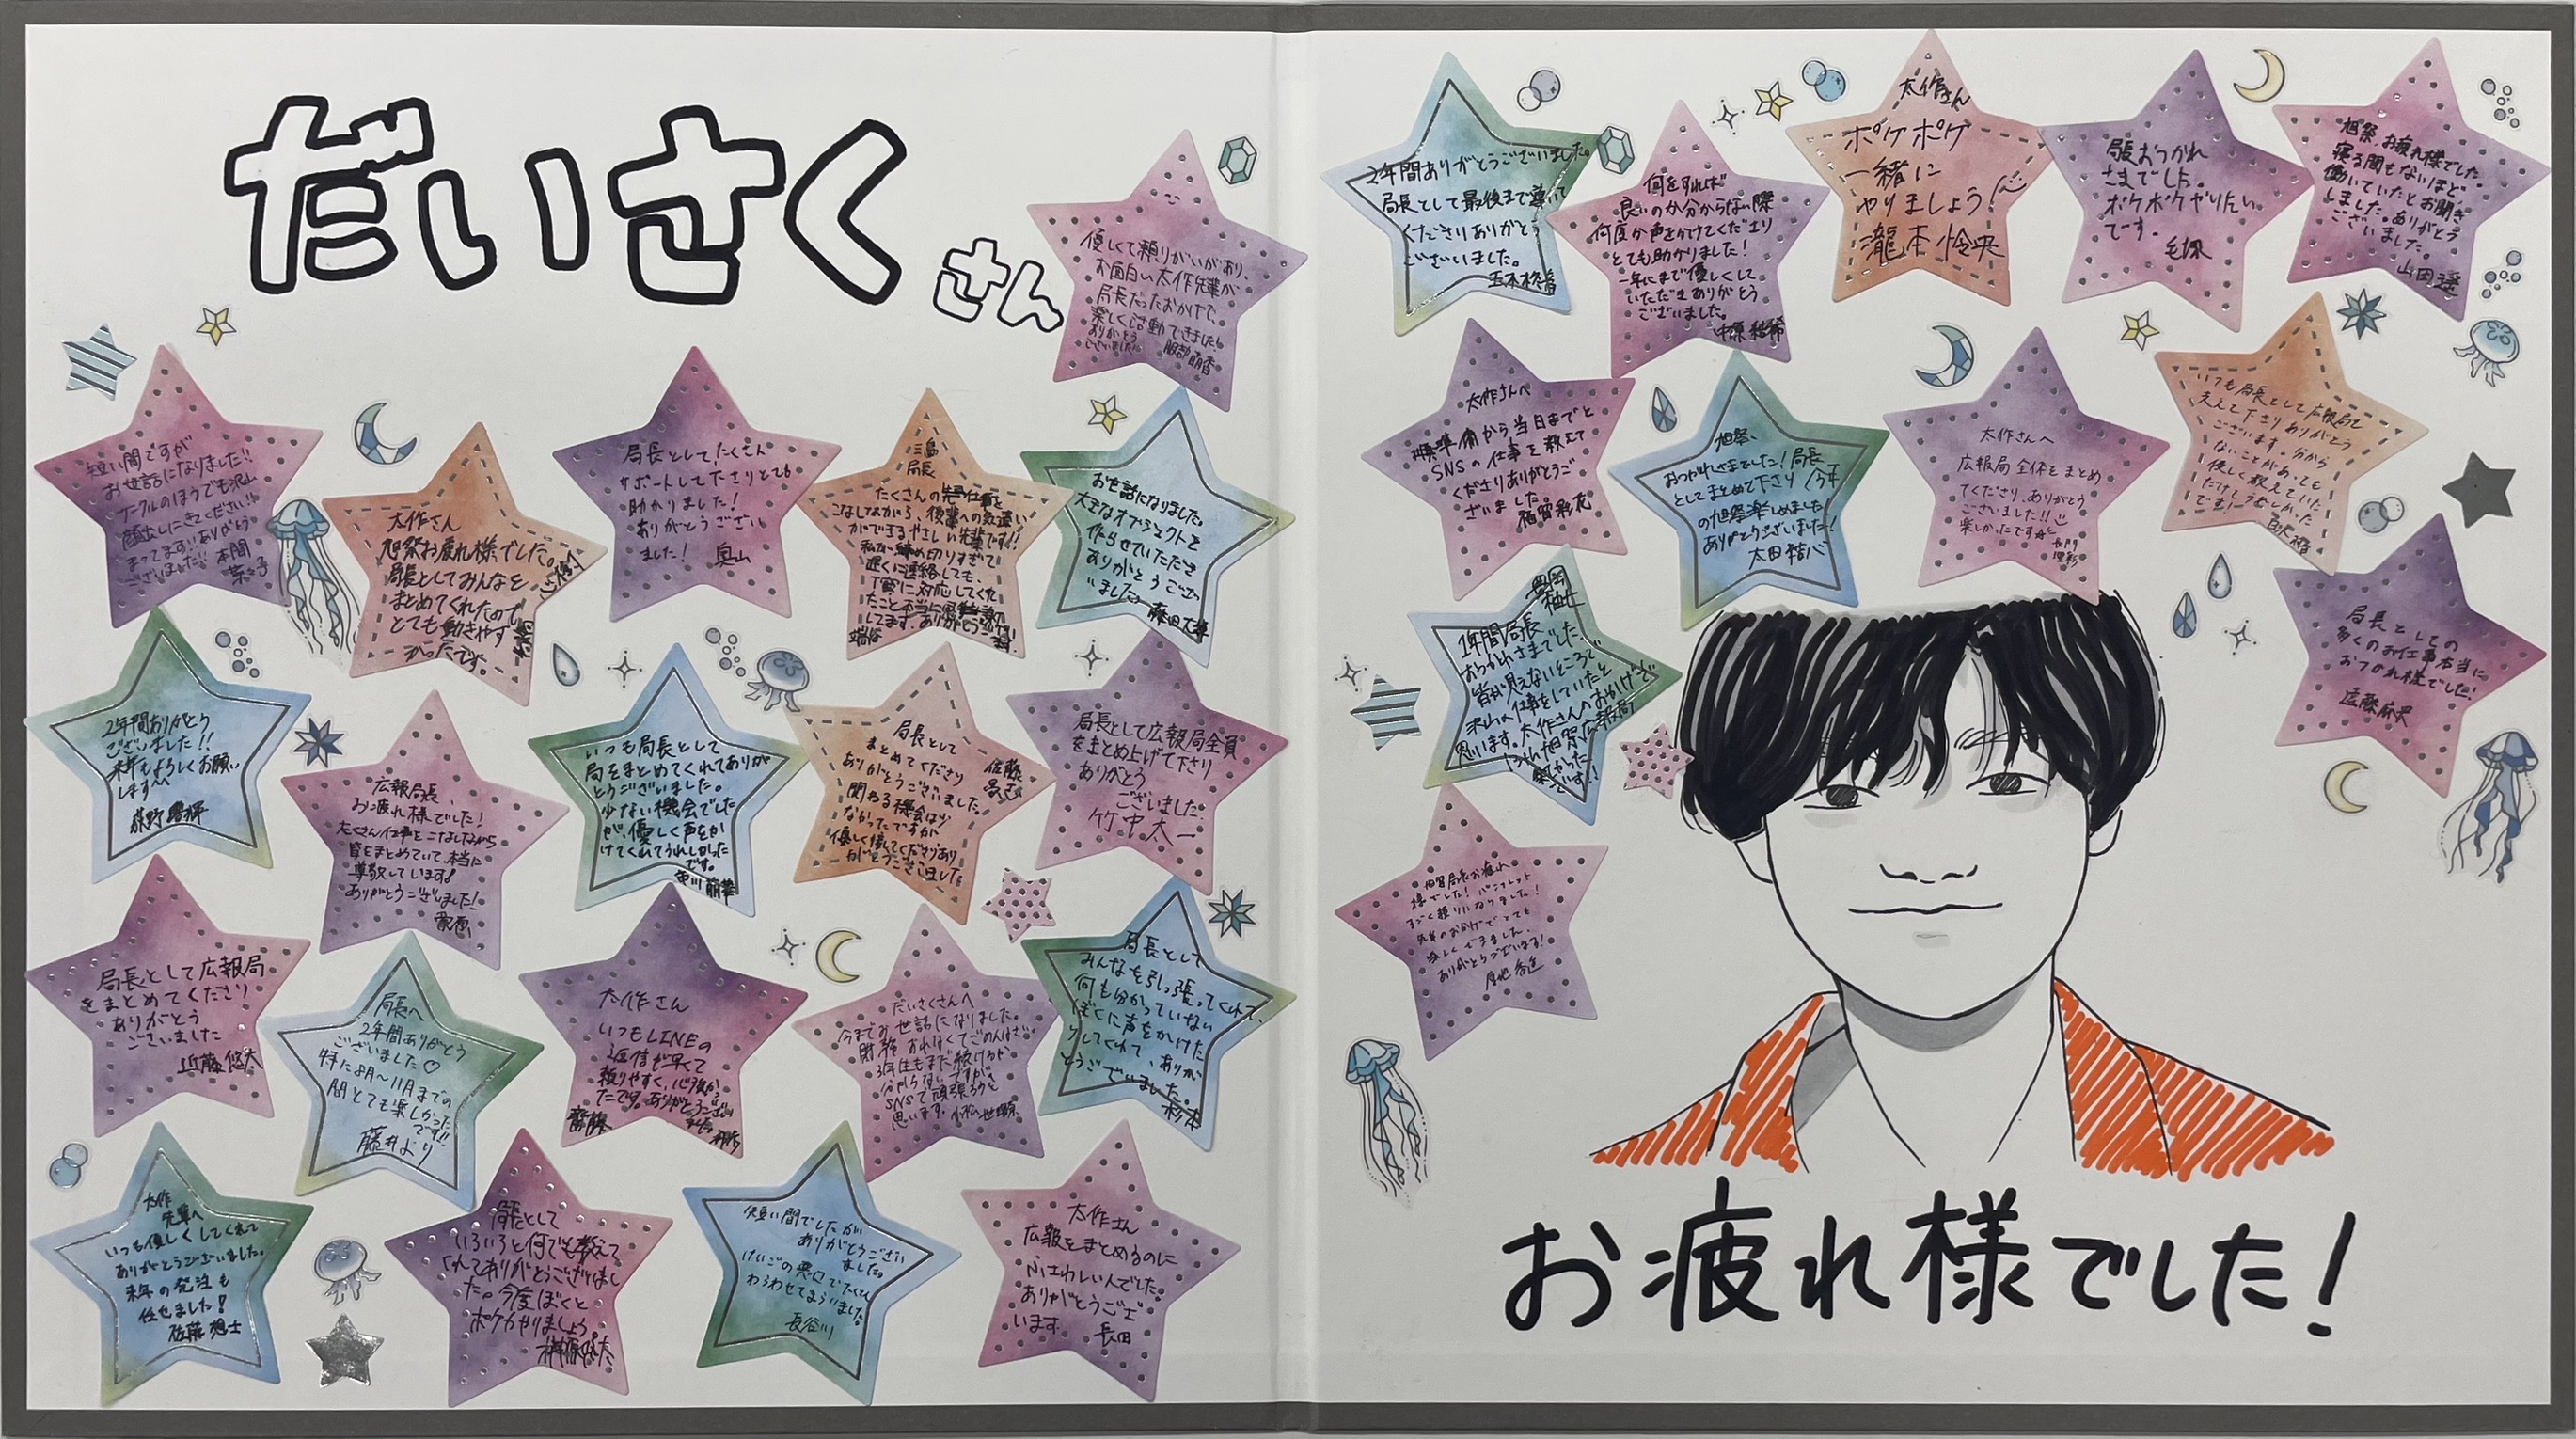 だいさく
さん
優しくて頼りがいがあり、
お面白い太作先輩が
局長だったおかげで、
楽しく活動できました!
ありがとう
ございました!
服部萌香
短い間ですが
お世話になりました!!
サークルのほうでも沢山
顔出しにきてください!!
まってます!!ありがとう
ございました!! 本間
菜々子
太作さん
旭祭お疲れ様でした。
局長としてみんなを
まとめてくれたので
とても動きやす
かったです。
局長としてたくさん
サポートして下さりとても
助かりました!
ありがとうござい
ました! 奥山
三島
局長
たくさんの仕事を
こなしながら、後輩への気遣い
ができるやさしい先輩です!!
私が締め切りすぎて
遅くに連絡しても、
丁寧に対応してくれ
たこと本当に感謝
してます。ありがとうござい
ます。
お世話になりました。
大きなオブジェクトを
作らせていただき
ありがとうござい
ました。
藤田大輝
2年間ありがとう
ございました!!
来年もよろしくお願い
します^^
荻野陽輝
広報局長、
お疲れ様でした!
たくさん仕事をこなしながら
皆をまとめていて、本当に
尊敬しています!
ありがとうございました!
いつも局長として
局をまとめてくれてありが
とうございました。
少ない機会でした
が、優しく声をか
けてくれてうれしかった
です。
市川萌華
局長として
まとめてくださり
ありがとうございました。
関わる機会は少
なかったですが
優しく接してくださりあり
がとうございました。
局長として広報局全員
をまとめ上げて下さり
ありがとう
ございました。
竹中太一
局長として広報局
をまとめてくださり
ありがとう
ございました
近藤悠太
局長へ
2年間ありがとう
ございました♡
特に8月〜11月までの
間とても楽しかった
です!!
藤井より
太作さん
いつもLINEの
返信が早くて
頼りやすく、心強かっ
たです。ありがとうござい
ました
齋藤
だいさくさんへ
今までお世話になりました。
財務おれなくてごめんなさい
3年生もまだ続けるか
分からないですが、
SNSで頑張ろうと
思います。
局長として
みんなを引っ張ってくれて、
何も分かっていない
ぼくに声をかけた
りしてくれて、ありが
とうございました。
杉本
太作
先輩へ
いつも優しくしてくれて
ありがとうございました。
来年の発注も
任せました!
佐藤想士
局長として
いろいろと何でも教えて
くれてありがとうございまし
た。今度ぼくと
ポケカやりましょう
榊原
短い間でしたが
ありがとうござい
ました。
けいごの悪口でたくさん
わらわせてもらいました。
長谷川
太作さん
広報をまとめるのに
ふさわしい人でした。
ありがとうござ
います。
長田
2年間ありがとうございました。
局長として最後まで導いて
くださりありがとう
ございました。
玉木柊音
何をすれば
良いのか分からない際
何度か声をかけてくださり
とても助かりました!
一年にまで優しくして
いただきありがとう
ございました。
中原結稀
太作さん
ポケポケ
一緒に
やりましょう!
瀧本怜央
局長おつかれ
さまでした。
ポケポケやりたい
です。
毛塚
旭祭、お疲れ様でした。
寝る間もないほど
働いていたとお聞き
しました。ありがとう
ございました。
山田遼
太作さんへ
準備から当日までと
SNSの仕事を教えて
くださりありがとうご
ざいました。
福留彩花
旭祭、
おつかれさまでした!局長
としてまとめて下さり今年
の旭祭楽しめました!
ありがとうございました!
太田結心
太作さんへ
広報局全体をまとめ
てくださり、ありがとう
ございました!!
楽しかったです
いつも局長として広報局を
支えて下さりありがとう
ございます。分から
ないことがあっても
優しく教えていた
だけてうれしかった
です!!
豊岡
柚七
1年間局長
おつかれさまでした。
皆が見えないところで
沢山仕事をしていたと
思います。太作さんのおかげで
局長としての
多くのお仕事本当に
おつかれ様でした!
遠藤麻央
お疲れ
様でした!パンフレット
すごく頼りになりました!
先輩のおかげでとても
楽しくできました。
ありがとうございます!
お疲れ様でした!